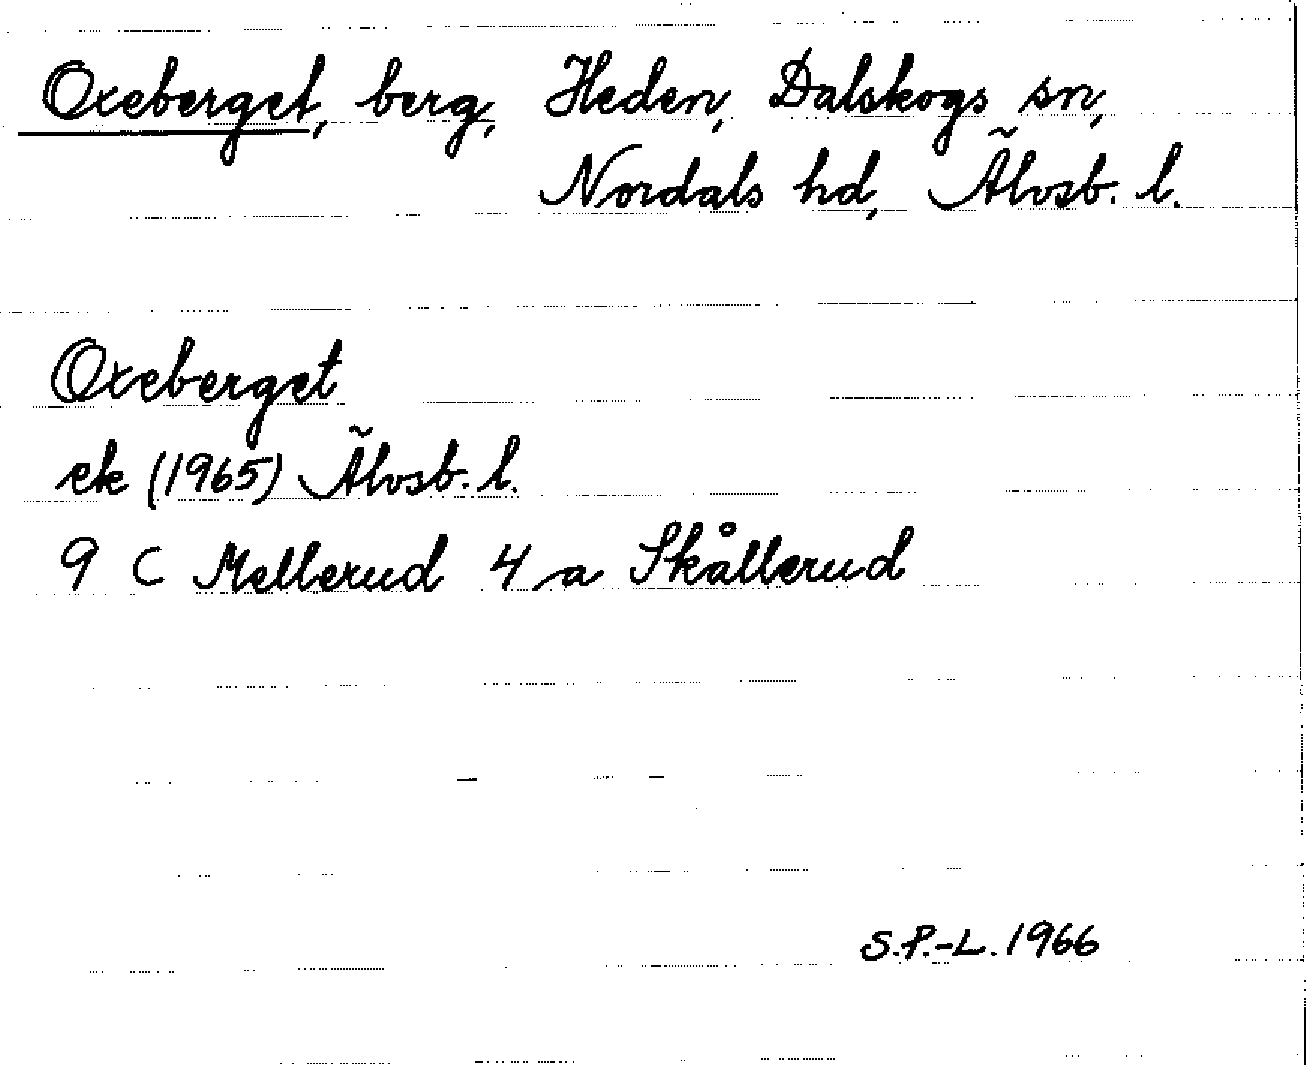 Oxeberget, berg, Heden, Dalskogs sn,
Nordals hd, Älvsb. l.
Oxeberget
ek (1965) Älvsb. l.
9 C Mellerud 4 a Skållerud
S.P.-L. 1966